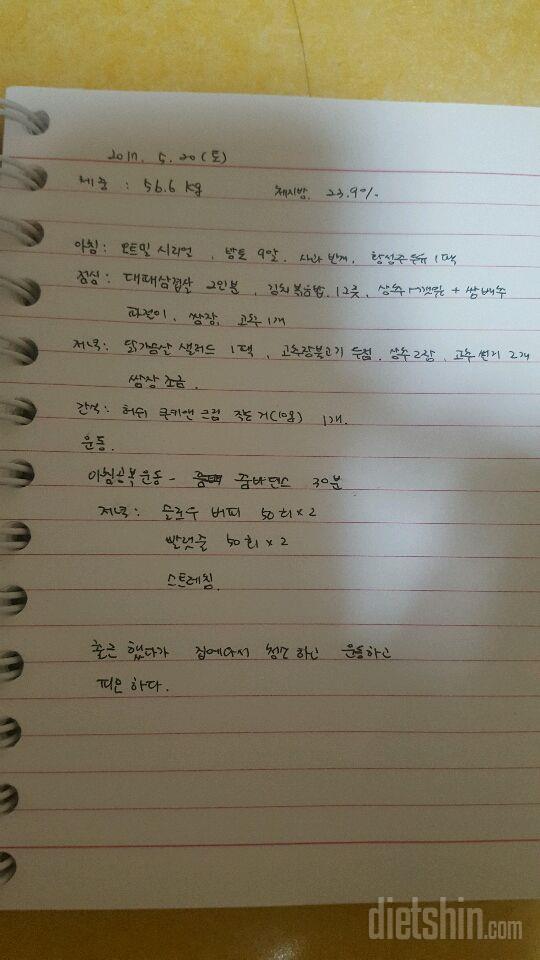 2017. 5. 20 (토)
체중 : 56.6 kg 체지방. 23.9%.
아침: 오트밀 시리얼, 방토 9알, 사과 반개, 두유 1팩
점심: 대패삼겹살 2인분, 김치볶음밥, 상추 + 쌈배추
파절이, 쌈장, 고추 1개
저녁: 닭가슴살 샐러드 1팩, 고추장불고기 두점, 상추 2장, 고추 썬거 2개
쌈장 조금.
간식: 허쉬 쿠키앤크림 작은거 1개.
운동.
아침공복운동 - 줌바댄스 30분
저녁: 슬로우 버피 50회 x 2
발렛줄 50회 x 2
스트레칭.
출근 했다가 집에와서 청소하고 운동하고
피곤하다.
dietshin.com